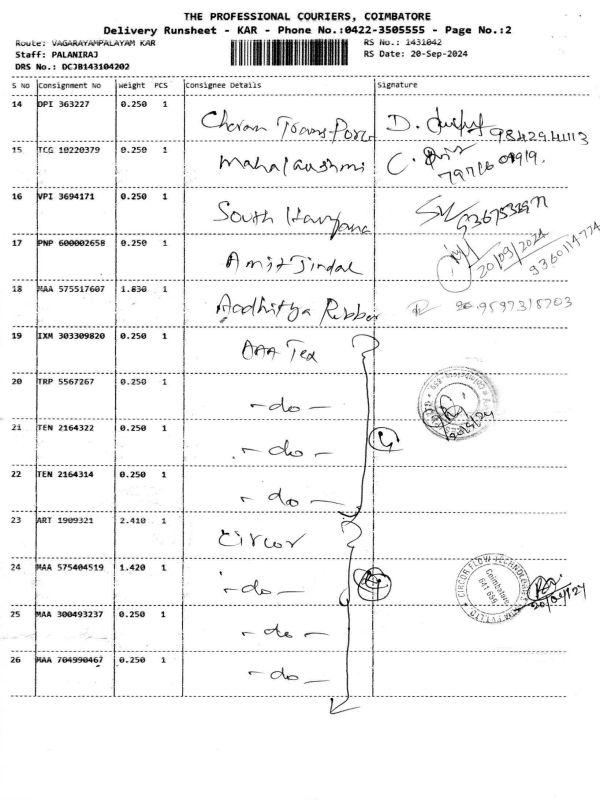 THE PROFESSIONAL COURIERS, COIMBATORE
Delivery Runsheet - KAR - Phone No.:0422-3505555 - Page No.:2
Route: VAGARAYAMPALAYAM KAR RS No.: 1431042
Staff: PALANIRAJ RS Date: 20-Sep-2024
DRS No.: DCJB143104202
S No Consignment No Weight PCS Consignee Details Signature
14 DPI 363227 0.250 1
Cheran Transport D. 9842941113
15 TCG 10220379 0.250 1
Mahalakshmi C.
16 VPI 3694171 0.250 1
South Haryana
17 PNP 600002658 0.250 1
Amit Jindal 20/09/2024
9360114774
18 MAA 575517607 1.830 1
Aadhitya Rubber
19 IXM 303309820 0.250 1
AAA Tex
20 TRP 5567267 0.250 1
- do -
21 TEN 2164322 0.250 1
- do - 4
22 TEN 2164314 0.250 1
- do -
23 ART 1909321 2.410 1
Circor
24 MAA 575404519 1.420 1
- do -
CIRCOR FLOW TECHNOLOGIES
Coimbatore
20/09/24
25 MAA 300493237 0.250 1
- do -
26 MAA 704990467 0.250 1
- do -